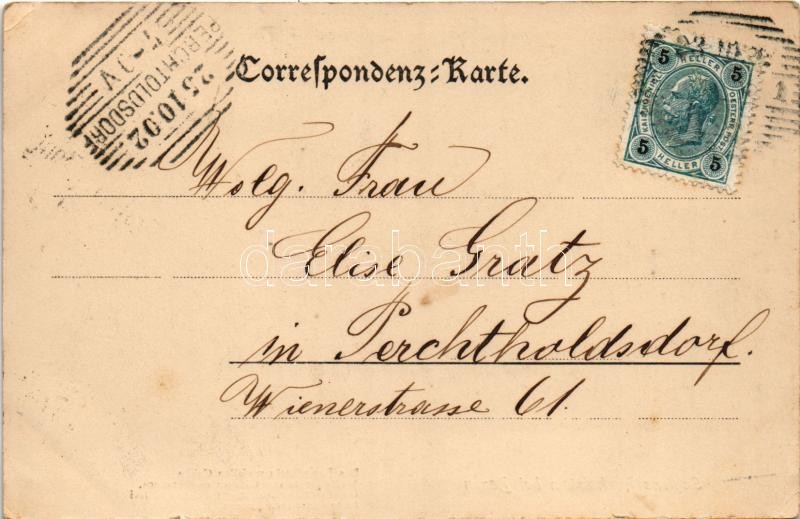 PERCHTOLDSDORF
25.10.02
7-9V
Correspondenz-Karte.
5 HELLER 5
KAIS. KÖNIGL. OESTERR. POST
5 HELLER 5
Wolg. Frau
Elise Gratz
in Perchtholdsdorf.
Wienerstrasse 61.
darabanth